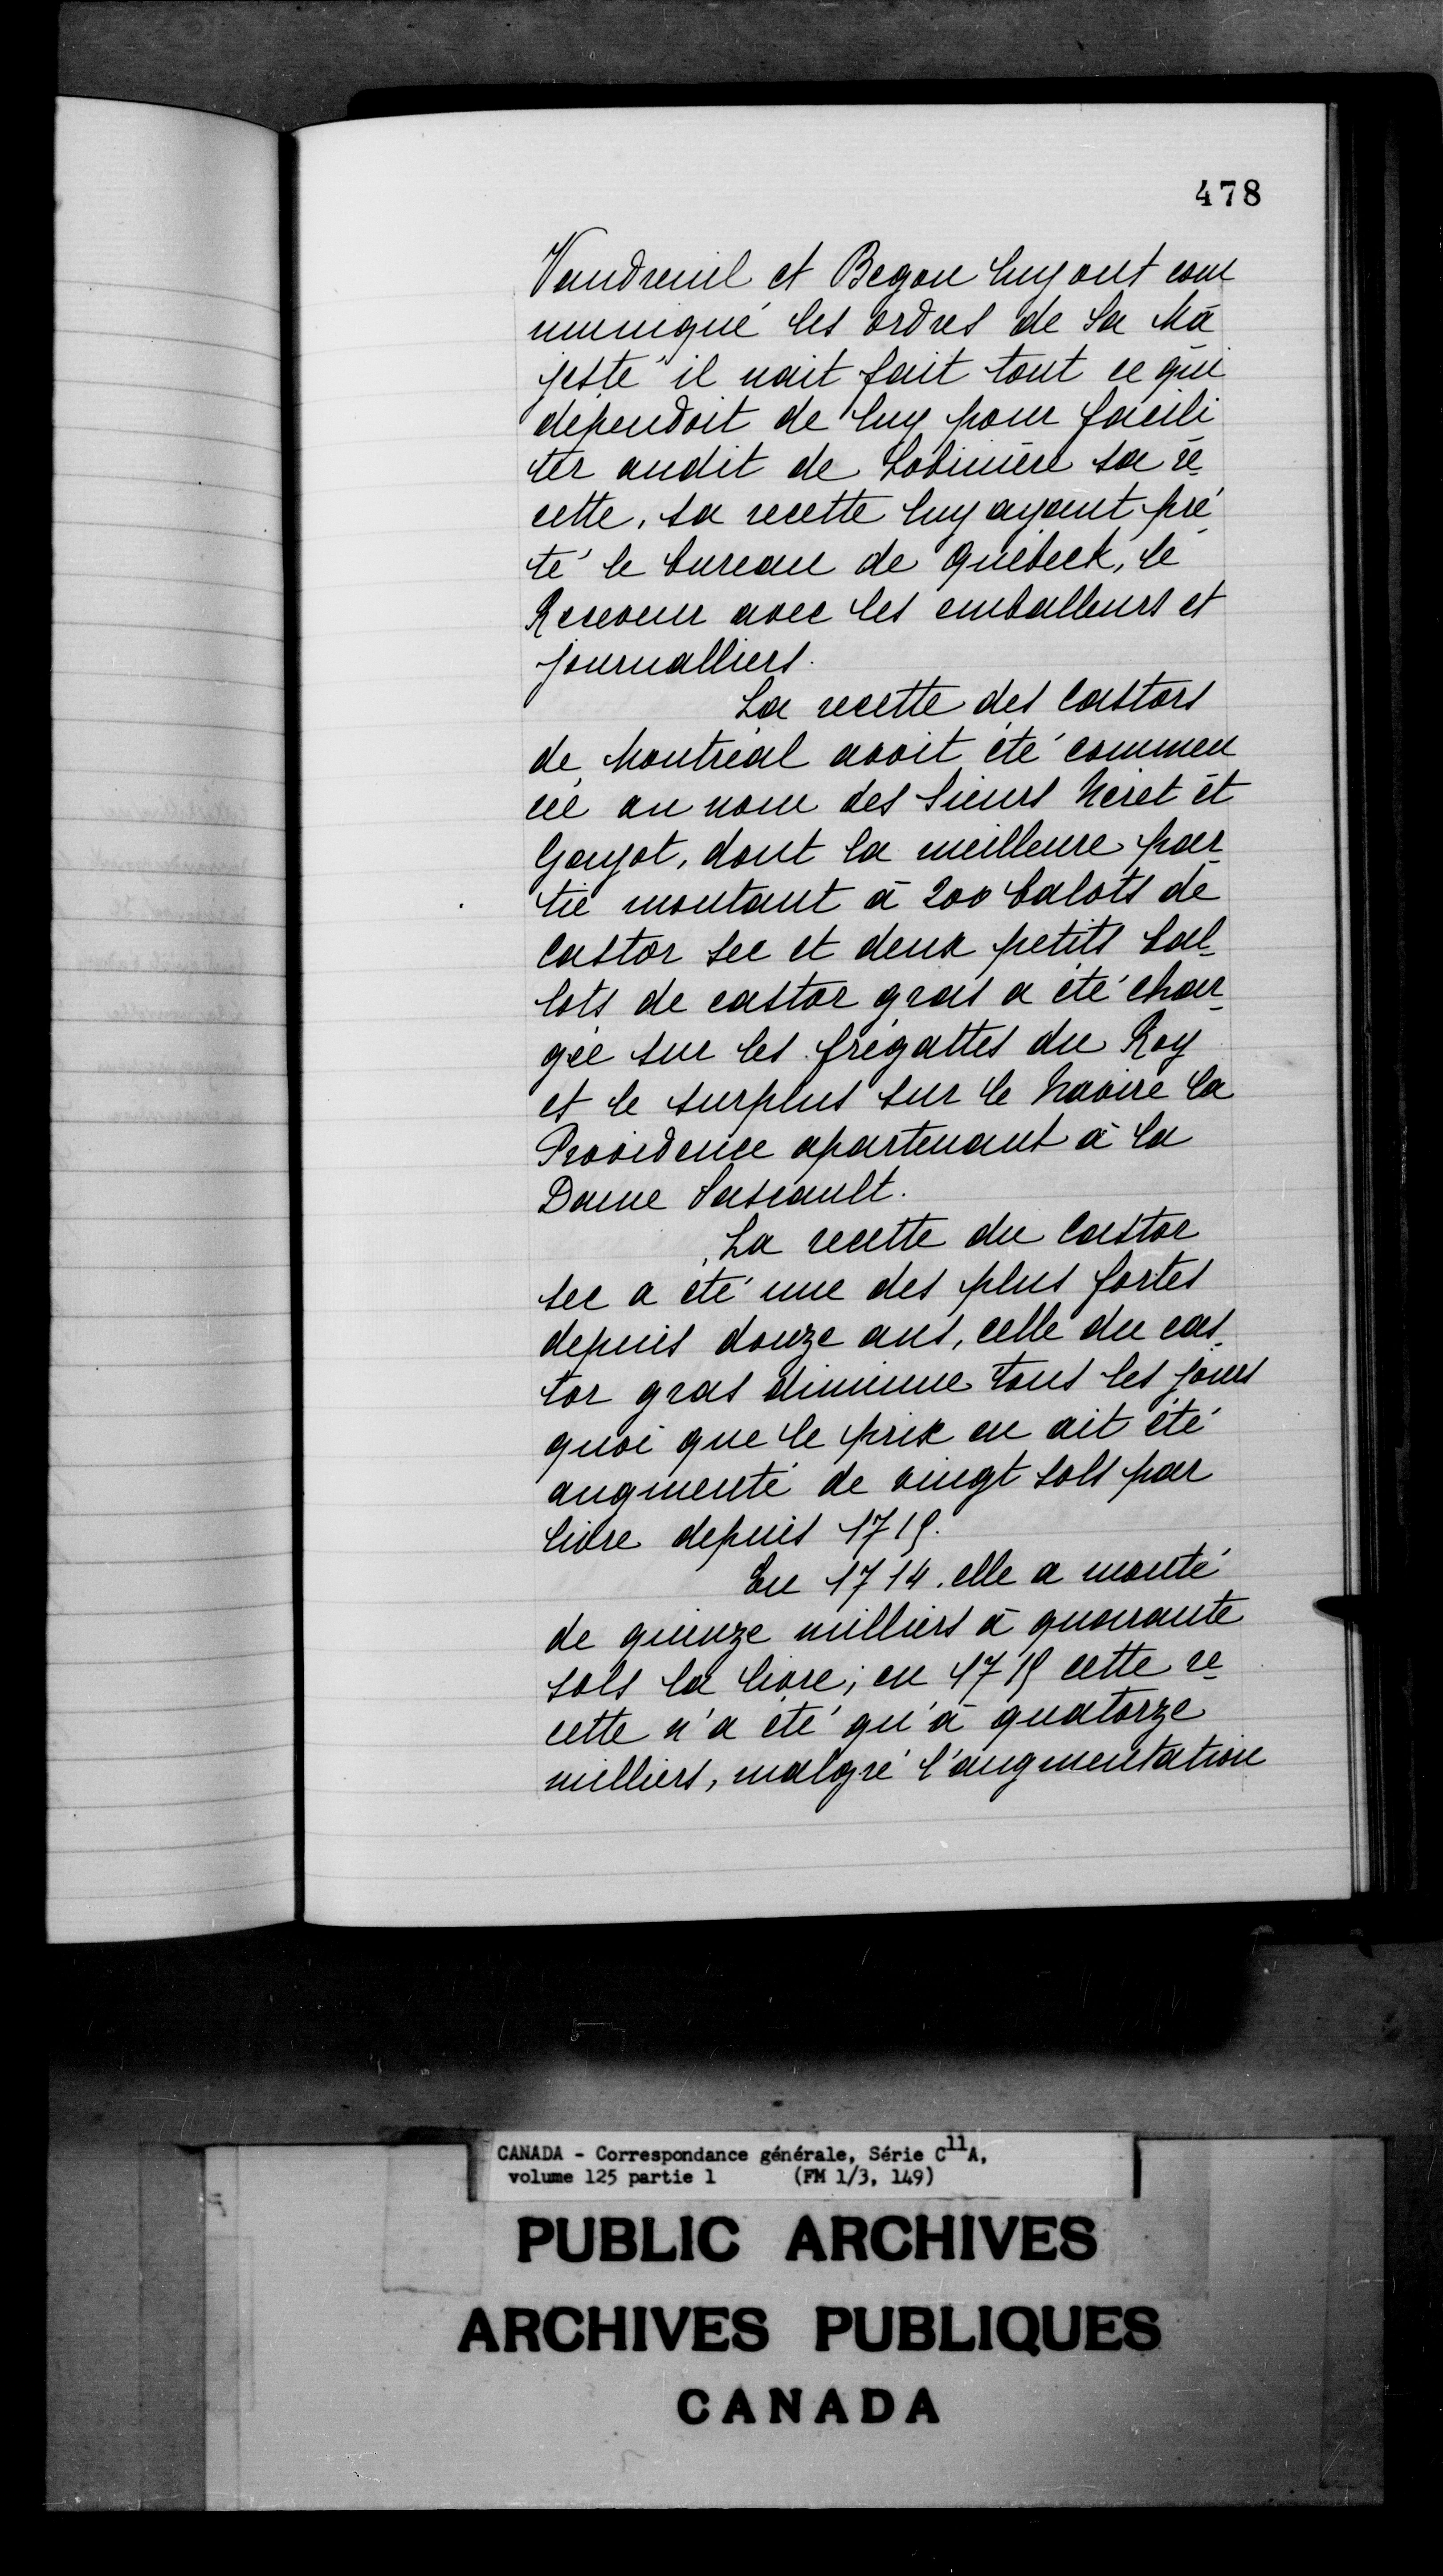 478
Vaudreuil et Begon luy ont com
muniqué les ordres de Sa Ma
jesté il nait fait tout ce qui
dependoit de luy pour facili
ter audit de Lobinière sa re
cette, sa recette luy ayant pré
té le bureau de Quebeck, le
Receveur avec les emballeurs et
journalliers.
La recette des Castors
de Montréal avoit été commen
cée au nom des Sieurs Néret et
Gayot, dont la meilleure par
tie montant à 200 balots de
Castor sec et deux petits bal
lots de castor gras a été char
gée sur les frégattes du Roy
et le surplus sur le Navire la
Providence apartenant à la
Dame Pascault.
La recette du Castor
sec a été une des plus fortes
depuis douze ans, celle du cas
tor gras diminue tous les jours
quoi que le prix en ait été
augmenté de vingt sols par
livre depuis 1715.
En 1714. elle a monté
de quinze milliers à quarante
sols la livre; en 1715 cette re
cette n'a été qu'à quatorze
milliers, malgré l'augmentation
CANADA - Correspondance générale, Série C11A,
volume 125 partie 1 (FM 1/3, 149)
PUBLIC ARCHIVES
ARCHIVES PUBLIQUES
CANADA